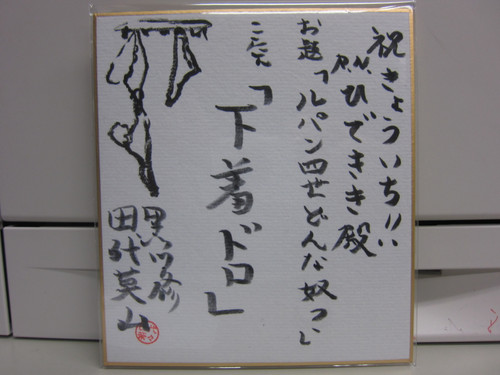 祝きょういち!!
R.N.ひできき殿
お題「ルパン四世どんな奴つ」
「下着ドロ」
黒川修
田代英山